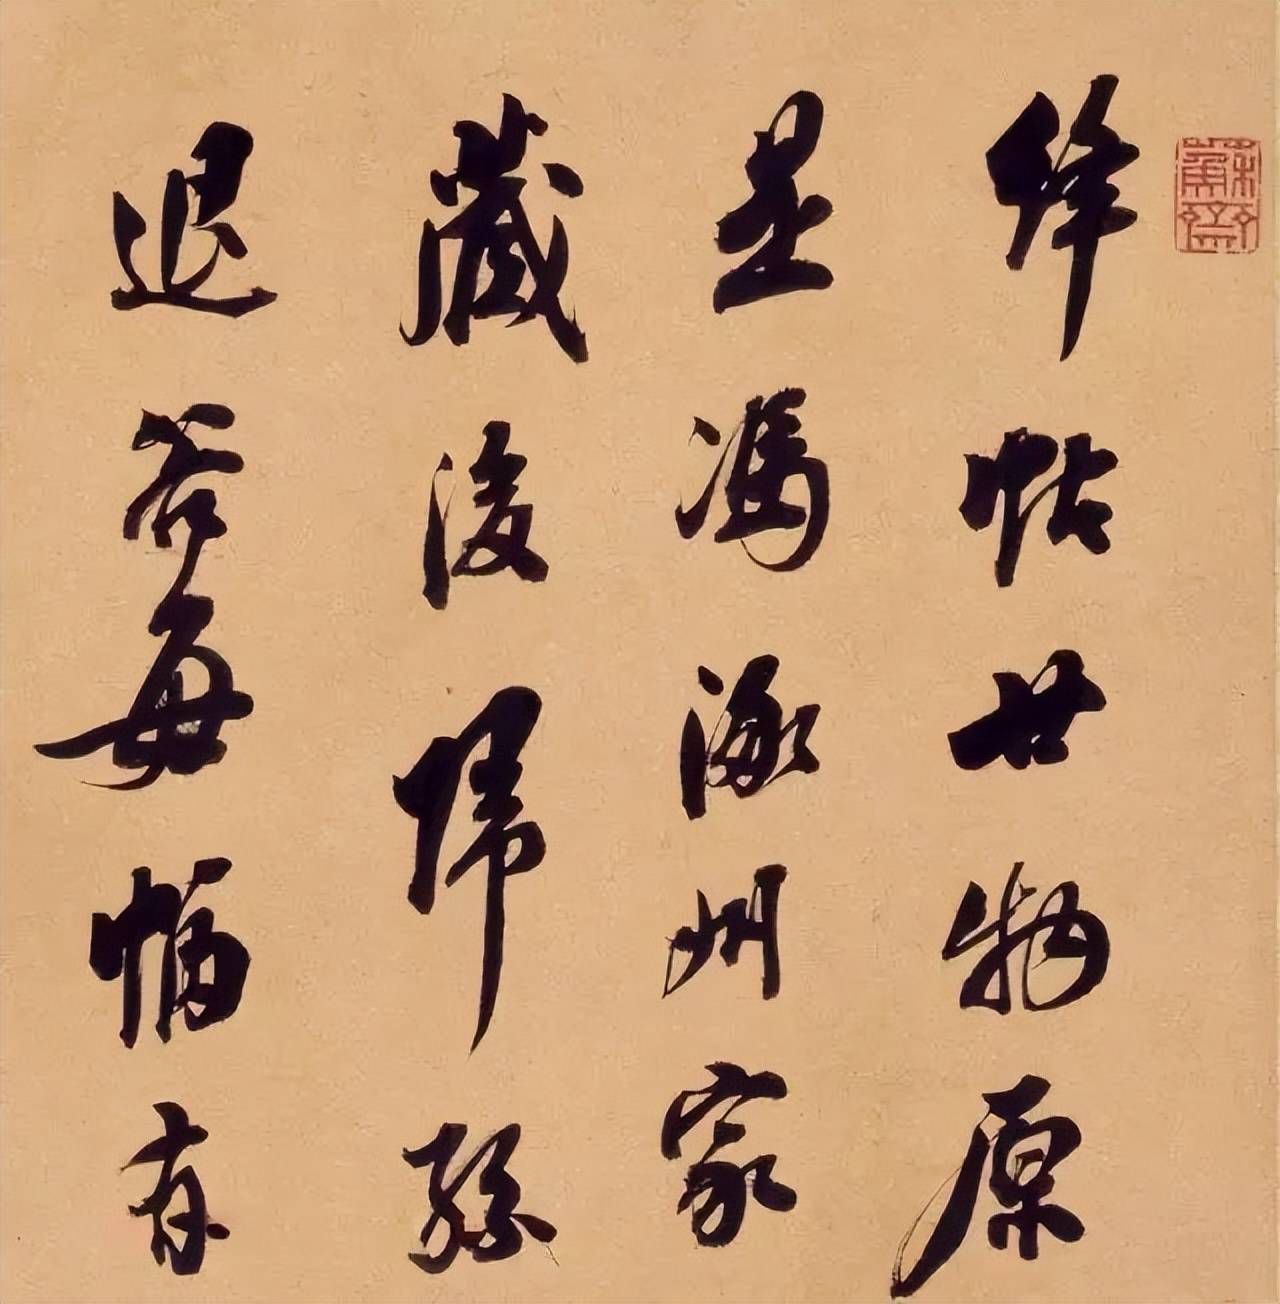 蘇齋
絳帖廿原
是馮涿州家
藏後歸孫
退谷每幅有